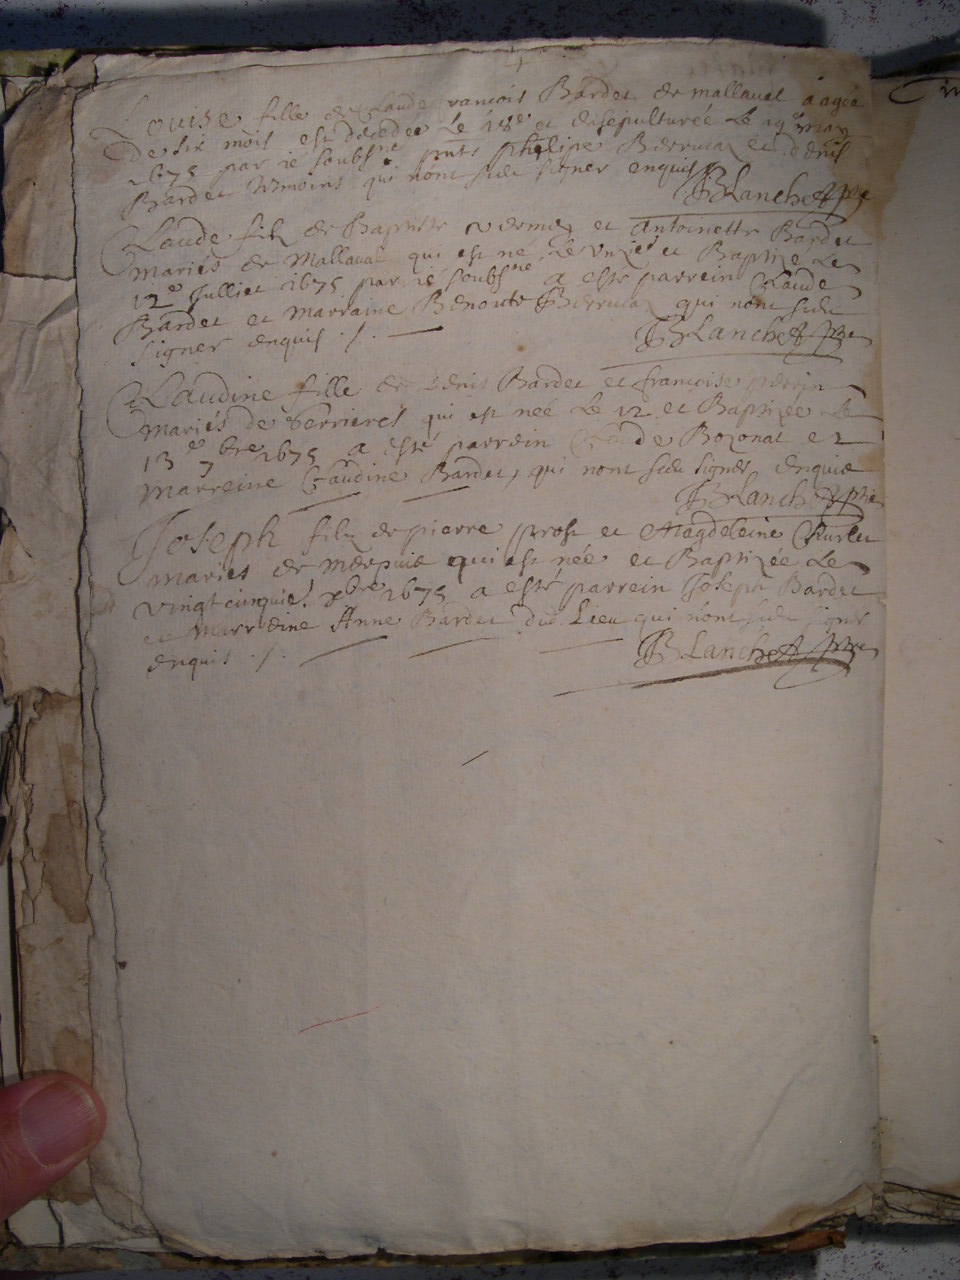 Louise fille de Claude francois Bardet de mallaval aagée
de six mois est decedée le 18e et ensepulturée le 19e may
1675 par ie soubsné pnts Phelipe et denis
Bardet temoins qui nont sceu signer enquis
Blanchet ptre
Claude filz de Baptiste et Antoinette Bardet
mariés de Mallaval qui est né le unze et Baptizé le
12e Julliet 1675 par ie soubsné a esté parrein Claude
Bardet et marraine Benoite qui nont sceu
signer enquis ./.
Blanchet ptre
Claudine fille de denis Bardet et francoise perrin
mariés de Verrieres qui est neé le 12 et Baptizée le
13e 7bre 1675 a esté parrein Claude Bozonat et
marreine Claudine Bardet, qui nont sceu signer enquis
Blanchet ptre
Joseph filz de pierre prost et Magdeleine
mariés de qui est née et Baptizée le
vingt cinquie! xbre 1675 a esté parrein Joseph Bardet
et Marreine Anne Bardet dud. Lieu qui nont sceu signé
enquis ./.
Blanchet ptre